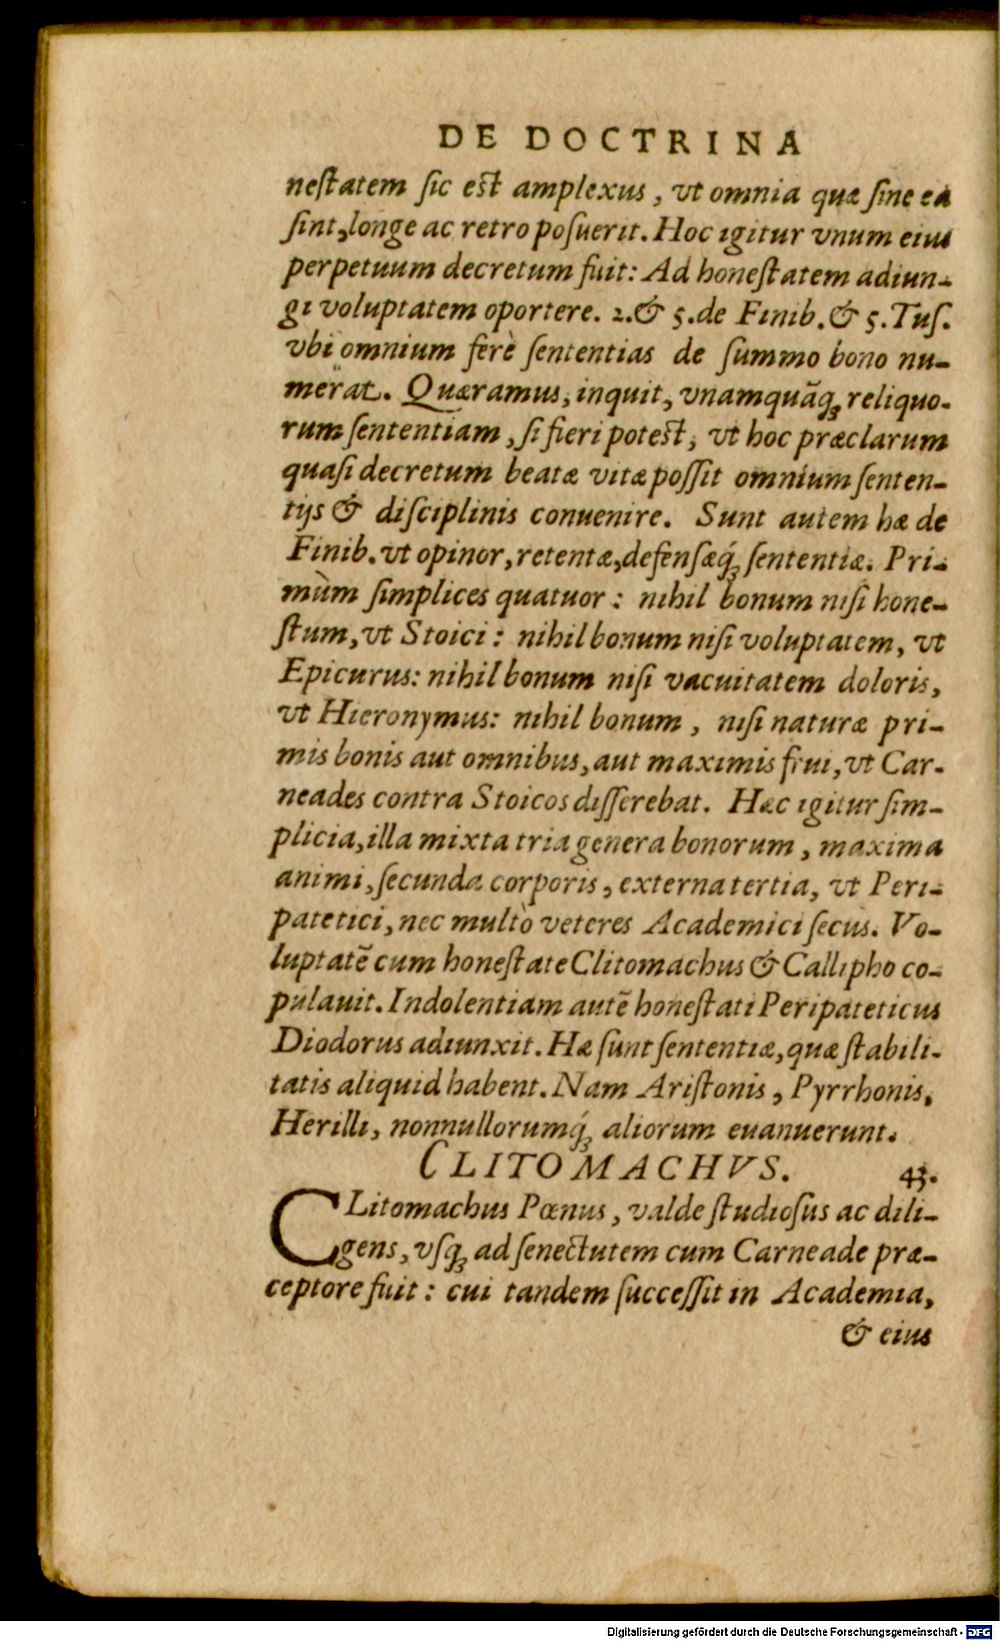 DE DOCTRINA
neſtatem ſic eſt amplexus, vt omnia quæ ſine ea
ſint, longe ac retro poſuerit. Hoc igitur vnum eius
perpetuum decretum fuit: Ad honeſtatem adiun-
gi voluptatem oportere. 2. & 5. de Finib. & 5. Tuſ.
vbi omnium ferè ſententias de ſummo bono nu-
merat. Quæramus, inquit, vnamquãq; reliquo-
rum ſententiam, ſi fieri poteſt, vt hoc præclarum
quaſi decretum beatæ vitæ poſſit omnium ſenten-
tijs & diſciplinis conuenire. Sunt autem hæ de
Finib. vt opinor, retentæ, defenſæq́; ſententiæ. Pri-
mùm ſimplices quatuor: nihil bonum niſi hone-
ſtum, vt Stoici: nihil bonum niſi voluptatem, vt
Epicurus: nihil bonum niſi vacuitatem doloris,
vt Hieronymus: nihil bonum, niſi naturæ pri-
mis bonis aut omnibus, aut maximis frui, vt Car-
neades contra Stoicos diſſerebat. Hæc igitur ſim-
plicia, illa mixta tria genera bonorum, maxima
animi, ſecunda corporis, externa tertia, vt Peri-
patetici, nec multò veteres Academici ſecus. Vo-
luptatẽ cum honeſtate Clitomachus & Callipho co-
pulauit. Indolentiam autẽ honeſtati Peripateticus
Diodorus adiunxit. Hæ ſunt ſententiæ, quæ ſtabili-
tatis aliquid habent. Nam Ariſtonis, Pyrrhonis,
Herilli, nonnullorumq́; aliorum euanuerunt.
CLITOMACHVS. 43.
CLitomachus Pœnus, valde ſtudioſus ac dili-
gens, vſq; ad ſenectutem cum Carneade præ-
ceptore fuit: cui tandem ſucceſſit in Academia,
& eius
Digitalisierung gefördert durch die Deutsche Forschungsgemeinschaft - DFG